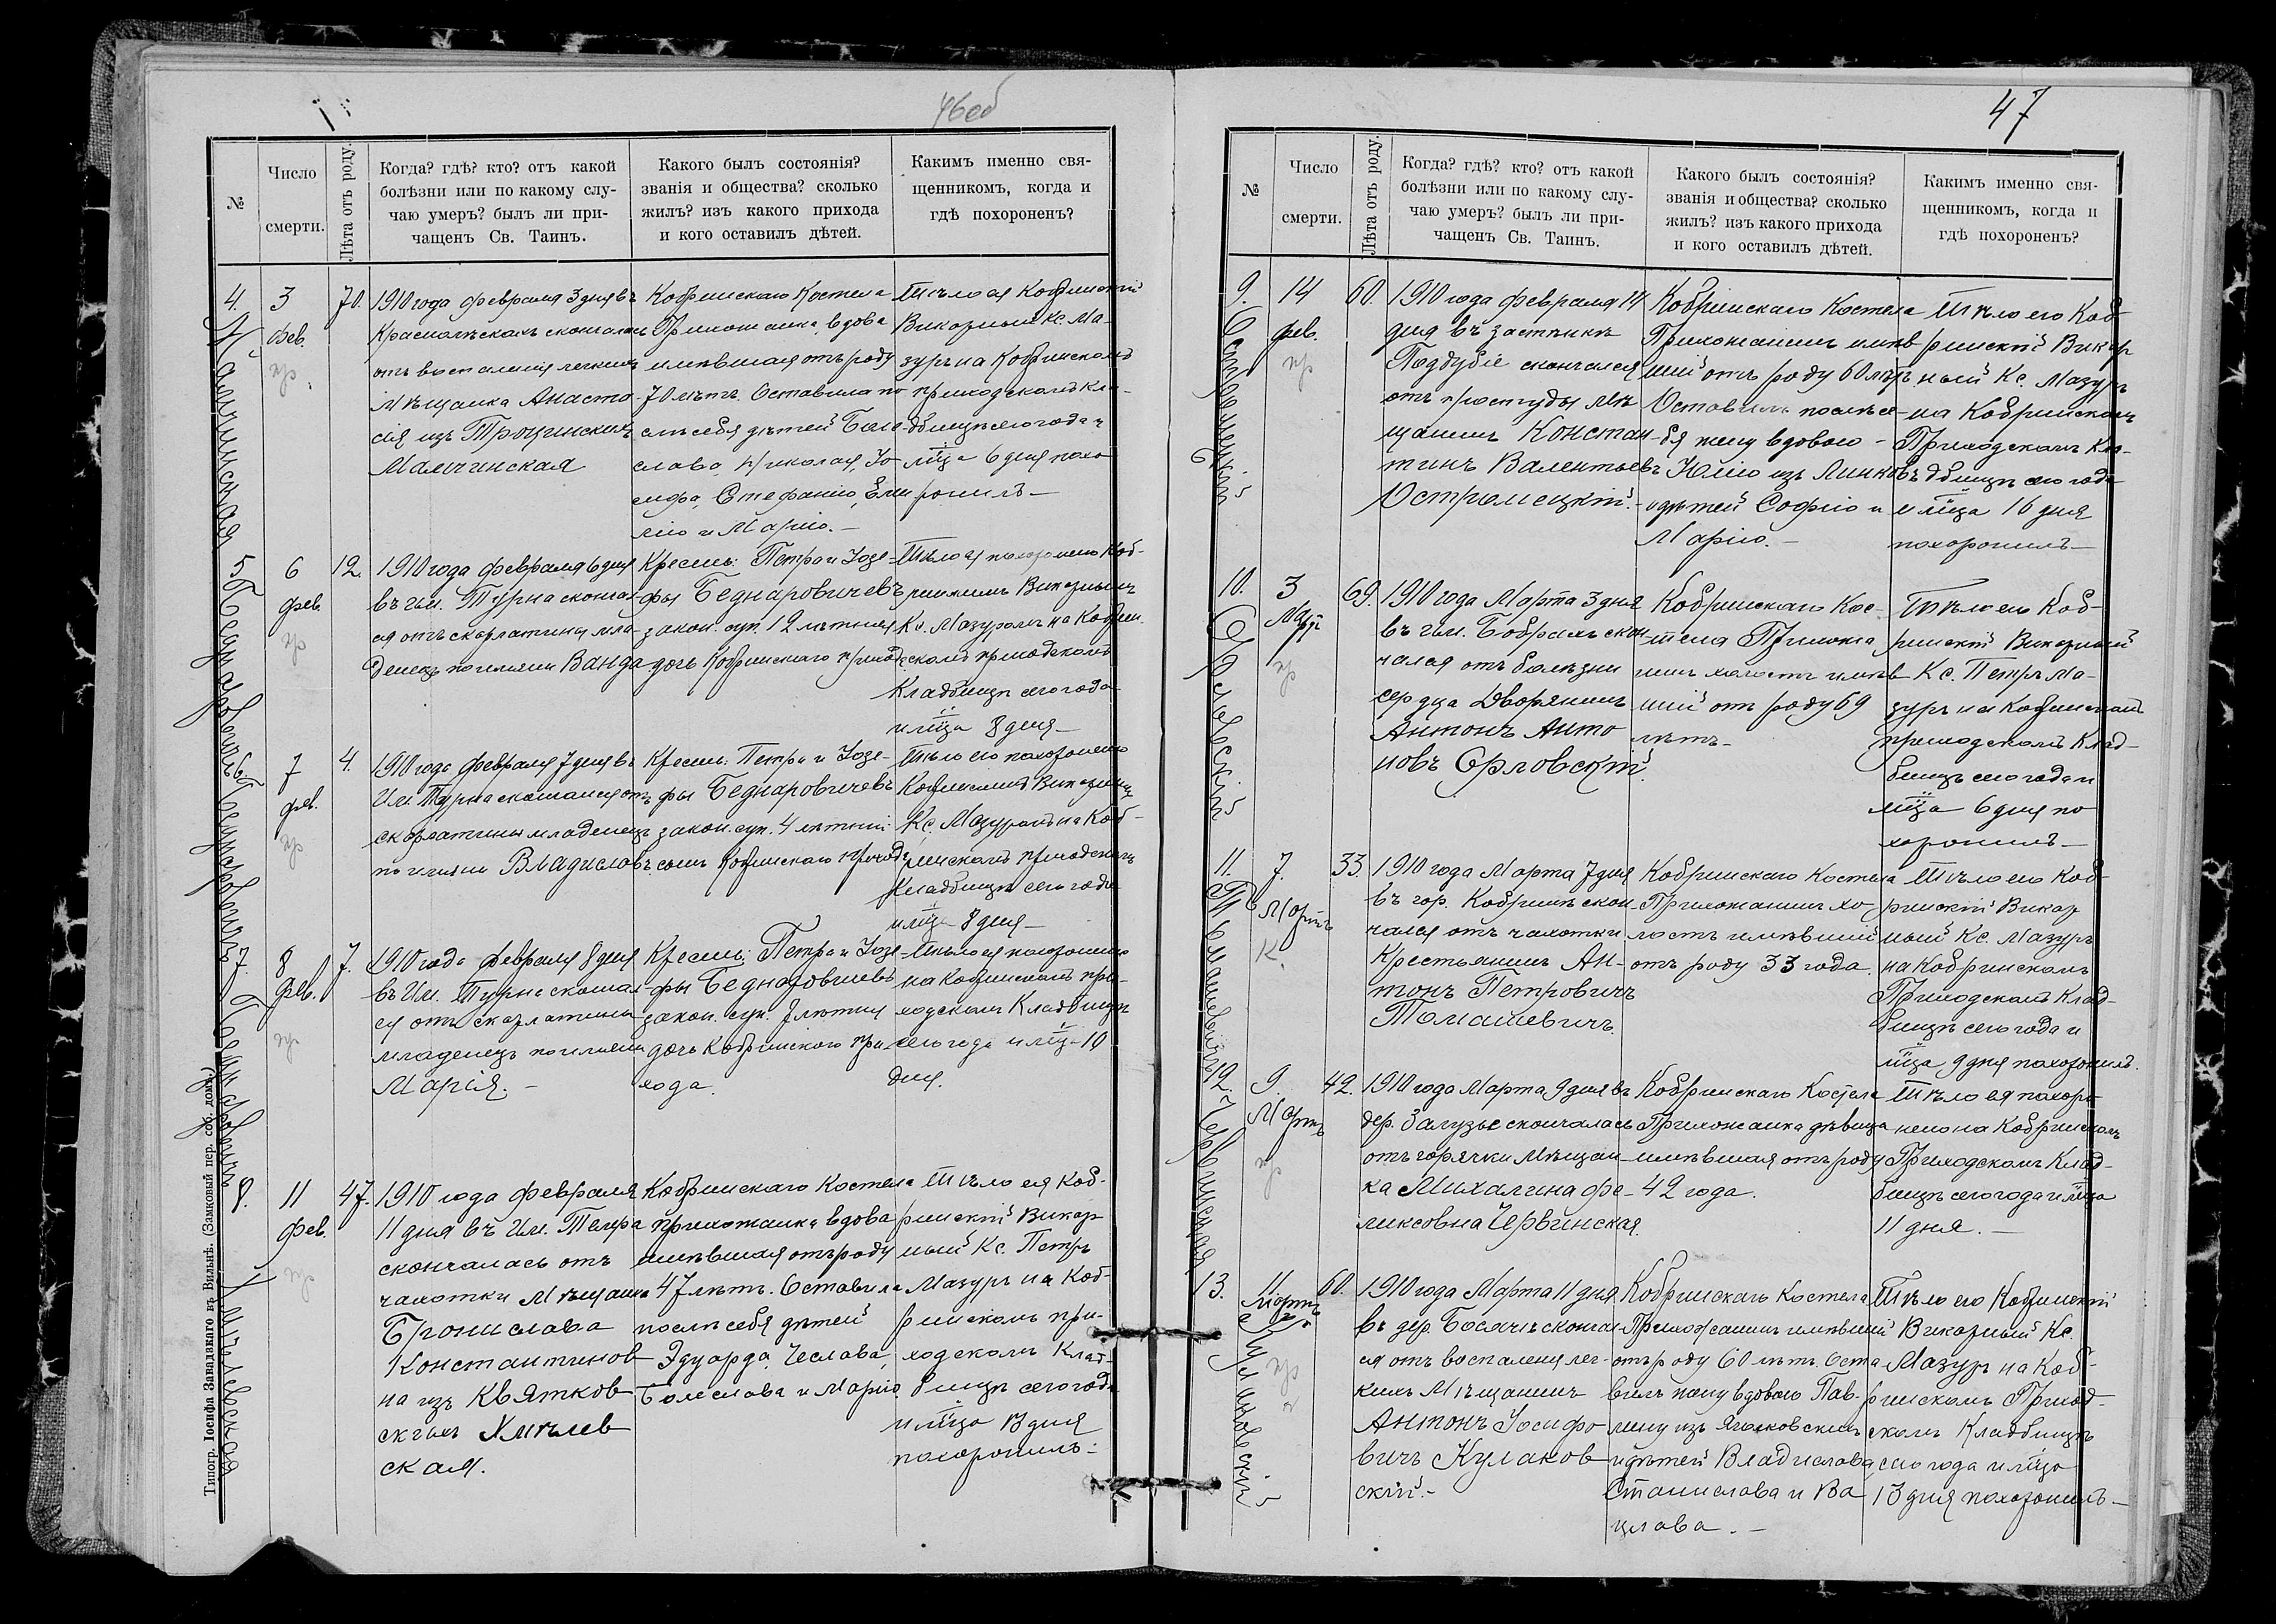 46об
№
Число
смерти.
Лѣта отъ роду.
Когда? гдѣ? кто? отъ какой
болѣзни или по какому слу-
чаю умеръ? былъ ли при-
чащенъ Св. Таинъ.
Какого былъ состоянія?
званія и общества? сколько
жилъ? изъ какого прихода
и кого оставилъ дѣтей.
Какимъ именно свя-
щенникомъ, когда и
гдѣ похороненъ?
4.
3
фев.
70.
1910 года февраля 3 дня въ
скончалась
отъ воспаленія легкихъ
мѣщанка Анаста-
сія изъ Трощинскихъ
Малчинская
Кобринскаго Костела
Прихожанка, вдова
имѣвшая отъ роду
70 лѣтъ. Оставила по-
слѣ себя дѣтей Боле-
слава, Николая, Іо-
сифа, Стефанію, Эми-
лію и Марію. —
Тѣло ея Кобринскій
Викарный Кс. Ма-
зуръ на Кобринскомъ
приходскомъ кла-
дбищѣ сего года и
мѣсяца 6 дня похо-
ронилъ —
Малчинская
5
6
фев.
12.
1910 года февраля 6 дня
въ им. Турна сконча-
ся отъ скарлатины мла-
денецъ по имени Ванда
Кресть: Петра и Іозе-
фы Беднаровичевъ
закон. суп. 12 лѣтняя
дочь Кобринскаго прихода
Тѣло ея похоронено Коб-
ринскимъ Викарнымъ
Кс. Мазуромъ на Кобрин-
скомъ приходскомъ
Кладбищѣ сего года
и мѣсяца 8 дня —
Беднаровичъ
6
7
фев.
4.
1910 года февраля 7 дня въ
Им. Турна скончался отъ
скарлатины младенецъ
по имени Владиславъ
Кресть: Петра и Іозе-
фы Беднаровичевъ
закон. суп. 4 лѣтній
сынъ Кобринскаго прихода
Тѣло его похоронено
Кобринскимъ Викарнымъ
Кс. Мазуромъ на Коб-
ринскомъ приходскомъ
Кладбищѣ сего года
и мѣсяца 8 дня —
Беднаровичъ
7.
8
фев.
7.
1910 года февраля 8 дня
въ Им. Турна сконча-
ся отъ скарлатины
младенецъ по имени
Марія. —
Кресть: Петра и Іозе-
фы Беднаровичевъ
закон. суп. 7 лѣтняя
дочь Кобринскаго при-
хода.
Тѣло ея похоронено
на Кобринскомъ при-
ходскомъ Кладбищѣ
сего года и мѣс. 10
дня.
Беднаровичъ
8.
11
фев.
47.
1910 года февраля
11 дня въ Им.
скончалась отъ
чахотки Мѣщанка
Бронислава
Константинов-
на изъ Квятков-
скихъ Хмѣлев-
ская.
Кобринскаго Костела
прихожанка вдова
имѣвшая отъ роду
47 лѣтъ. Оставила
послѣ себя дѣтей
Эдуарда, Чеслава,
Болеслава и Марію
Тѣло ея Коб-
ринскій Викар-
ный Кс. Петръ
Мазуръ на Коб-
ринскомъ при-
ходскомъ Клад-
бищѣ сего года
и мѣсяца 13 дня
похоронилъ:
Хмѣлевская
Типогр. Іосифа Завадзкаго въ Вильнѣ. (Замковый пер. соб. домъ.)
47
№
Число
смерти.
Лѣта отъ роду.
Когда? гдѣ? кто? отъ какой
болѣзни или по какому слу-
чаю умеръ? былъ ли при-
чащенъ Св. Таинъ.
Какого былъ состоянія?
званія и общества? сколько
жилъ? изъ какого прихода
и кого оставилъ дѣтей.
Какимъ именно свя-
щенникомъ, когда и
гдѣ похороненъ?
9.
14
фев.
60.
1910 года февраля 14
дня въ застѣнкѣ
Поддубіе скончался
отъ простуды мѣ-
щанинъ Констан-
тинъ Валентьевъ
Остромецкій. —
Кобринскаго Костела
Прихожанинъ имѣв-
шій отъ роду 60 лѣтъ
Оставилъ послѣ се-
бя жену вдовою —
Юлію изъ Линковъ
и дѣтей Софію и
Марію. —
Тѣло его Коб-
ринскій Викар-
ный Кс. Мазуръ
на Кобринскомъ
Приходскомъ Кла-
дбищѣ сего года
и мѣсяца 16 дня
похоронилъ —
Остромецкій
10.
3
Март
69.
1910 года Марта 3 дня
въ им. Бобрахъ скон-
чался отъ болѣзни
сердца Дворянинъ
Антонъ Анто-
новъ Орловскій.
Кобринскаго Кос-
тела Прихожа-
нинъ холостъ имѣв-
шій отъ роду 69
лѣтъ —
Тѣло его Коб-
ринскій Викарный
Кс. Петръ Ма-
зуръ на Кобринскомъ
приходскомъ Клад-
бищѣ сего года и
мѣсяца 6 дня по-
хоронилъ —
Орловскій
11.
7.
Мартъ
К.
33.
1910 года Марта 7 дня
въ гор. Кобринѣ скон-
чался отъ чахотки
Крестьянинъ Ан-
тонъ Петровичъ
Томашевичъ.
Кобринскаго Костела
Прихожанинъ хо-
лостъ имѣвшій
отъ роду 33 года.
Тѣло его Коб-
ринскій Викар-
ный Кс. Мазуръ
на Кобринскомъ
Приходскомъ Клад-
бищѣ сего года и
мѣсяца 9 дня похоронилъ.
Томашевичъ
12.
9.
Мартъ
42.
1910 года Марта 9 дня въ
дер. Залузье скончалась
отъ горячки Мѣщан-
ка Михалина Фе-
ликсовна Червинская.
Кобринскаго Костела
Прихожанка дѣвица
имѣвшая отъ роду
42 года.
Тѣло ея похоро-
нено на Кобринскомъ
Приходскомъ Клад-
бищѣ сего года и мѣсяца
11 дня. —
Червинская
13.
11
Мартъ
60.
1910 года Марта 11 дня
въ дер. Босячѣ скончал-
ся отъ воспаленія лег-
кихъ Мѣщанинъ
Антонъ Іосифо-
вичъ Кулаков-
скій. —
Кобринскаго Костела
Прихожанинъ имѣвшій
отъ роду 60 лѣтъ. Оста-
вилъ жену вдовою Пав-
лину изъ
и дѣтей Владислава,
Станислава и Ва-
цлава. —
Тѣло его Кобринскій
Викарный Кс.
Мазуръ на Коб-
ринскомъ Приход-
скомъ Кладбищѣ
сего года и мѣсяца
13 дня похоронилъ —
Кулаковскій